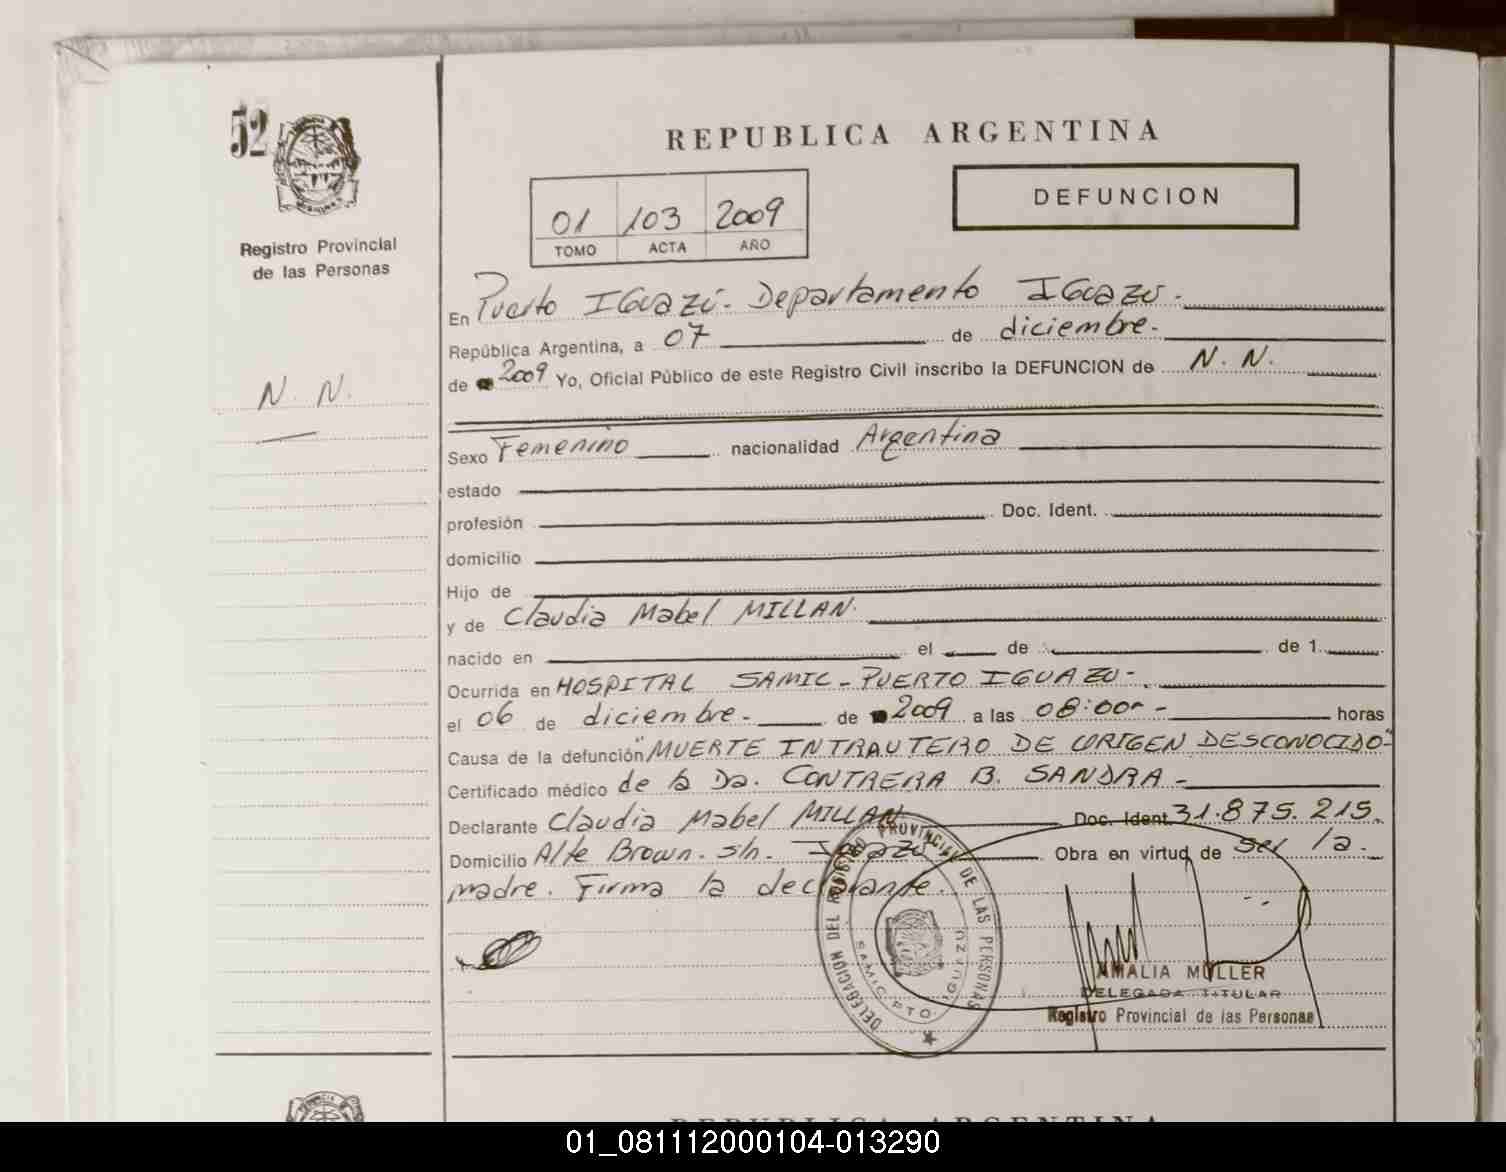 52
Registro Provincial
de las Personas
N. N.
REPUBLICA ARGENTINA
DEFUNCION
01 103 2009
TOMO ACTA AÑO
En Puerto IGuazú. Departamento IGuazu.
República Argentina, a 07 de diciembre.
de 2009 Yo, Oficial Público de este Registro Civil inscribo la DEFUNCION de N. N.
Sexo Femenino nacionalidad Argentina
estado
profesión Doc. Ident.
domicilio
Hijo de
y de Claudia Mabel MILLAN.
nacido en el de de 1
Ocurrida en HOSPITAL SAMIC - PUERTO IGUAZU -
el 06 de diciembre. de 2009 a las 08:00 - horas
Causa de la defunción "MUERTE INTRAUTERO DE ORIGEN DESCONOCIDO"
Certificado médico de la Da. CONTRERA B. SANDRA -
Declarante Claudia Mabel MILLAN Doc. Ident. 31.875.215.
Domicilio Alte Brown. s/n. Iguazú Obra en virtud de ser la.
madre. Firma la declarante.
DELEGACION DEL REGISTRO PROVINCIAL DE LAS PERSONAS
SAMIC PTO. IGUAZU
AMALIA MULLER
DELEGADA TITULAR
Registro Provincial de las Personas
REPUBLICA ARGENTINA
01_081112000104-013290